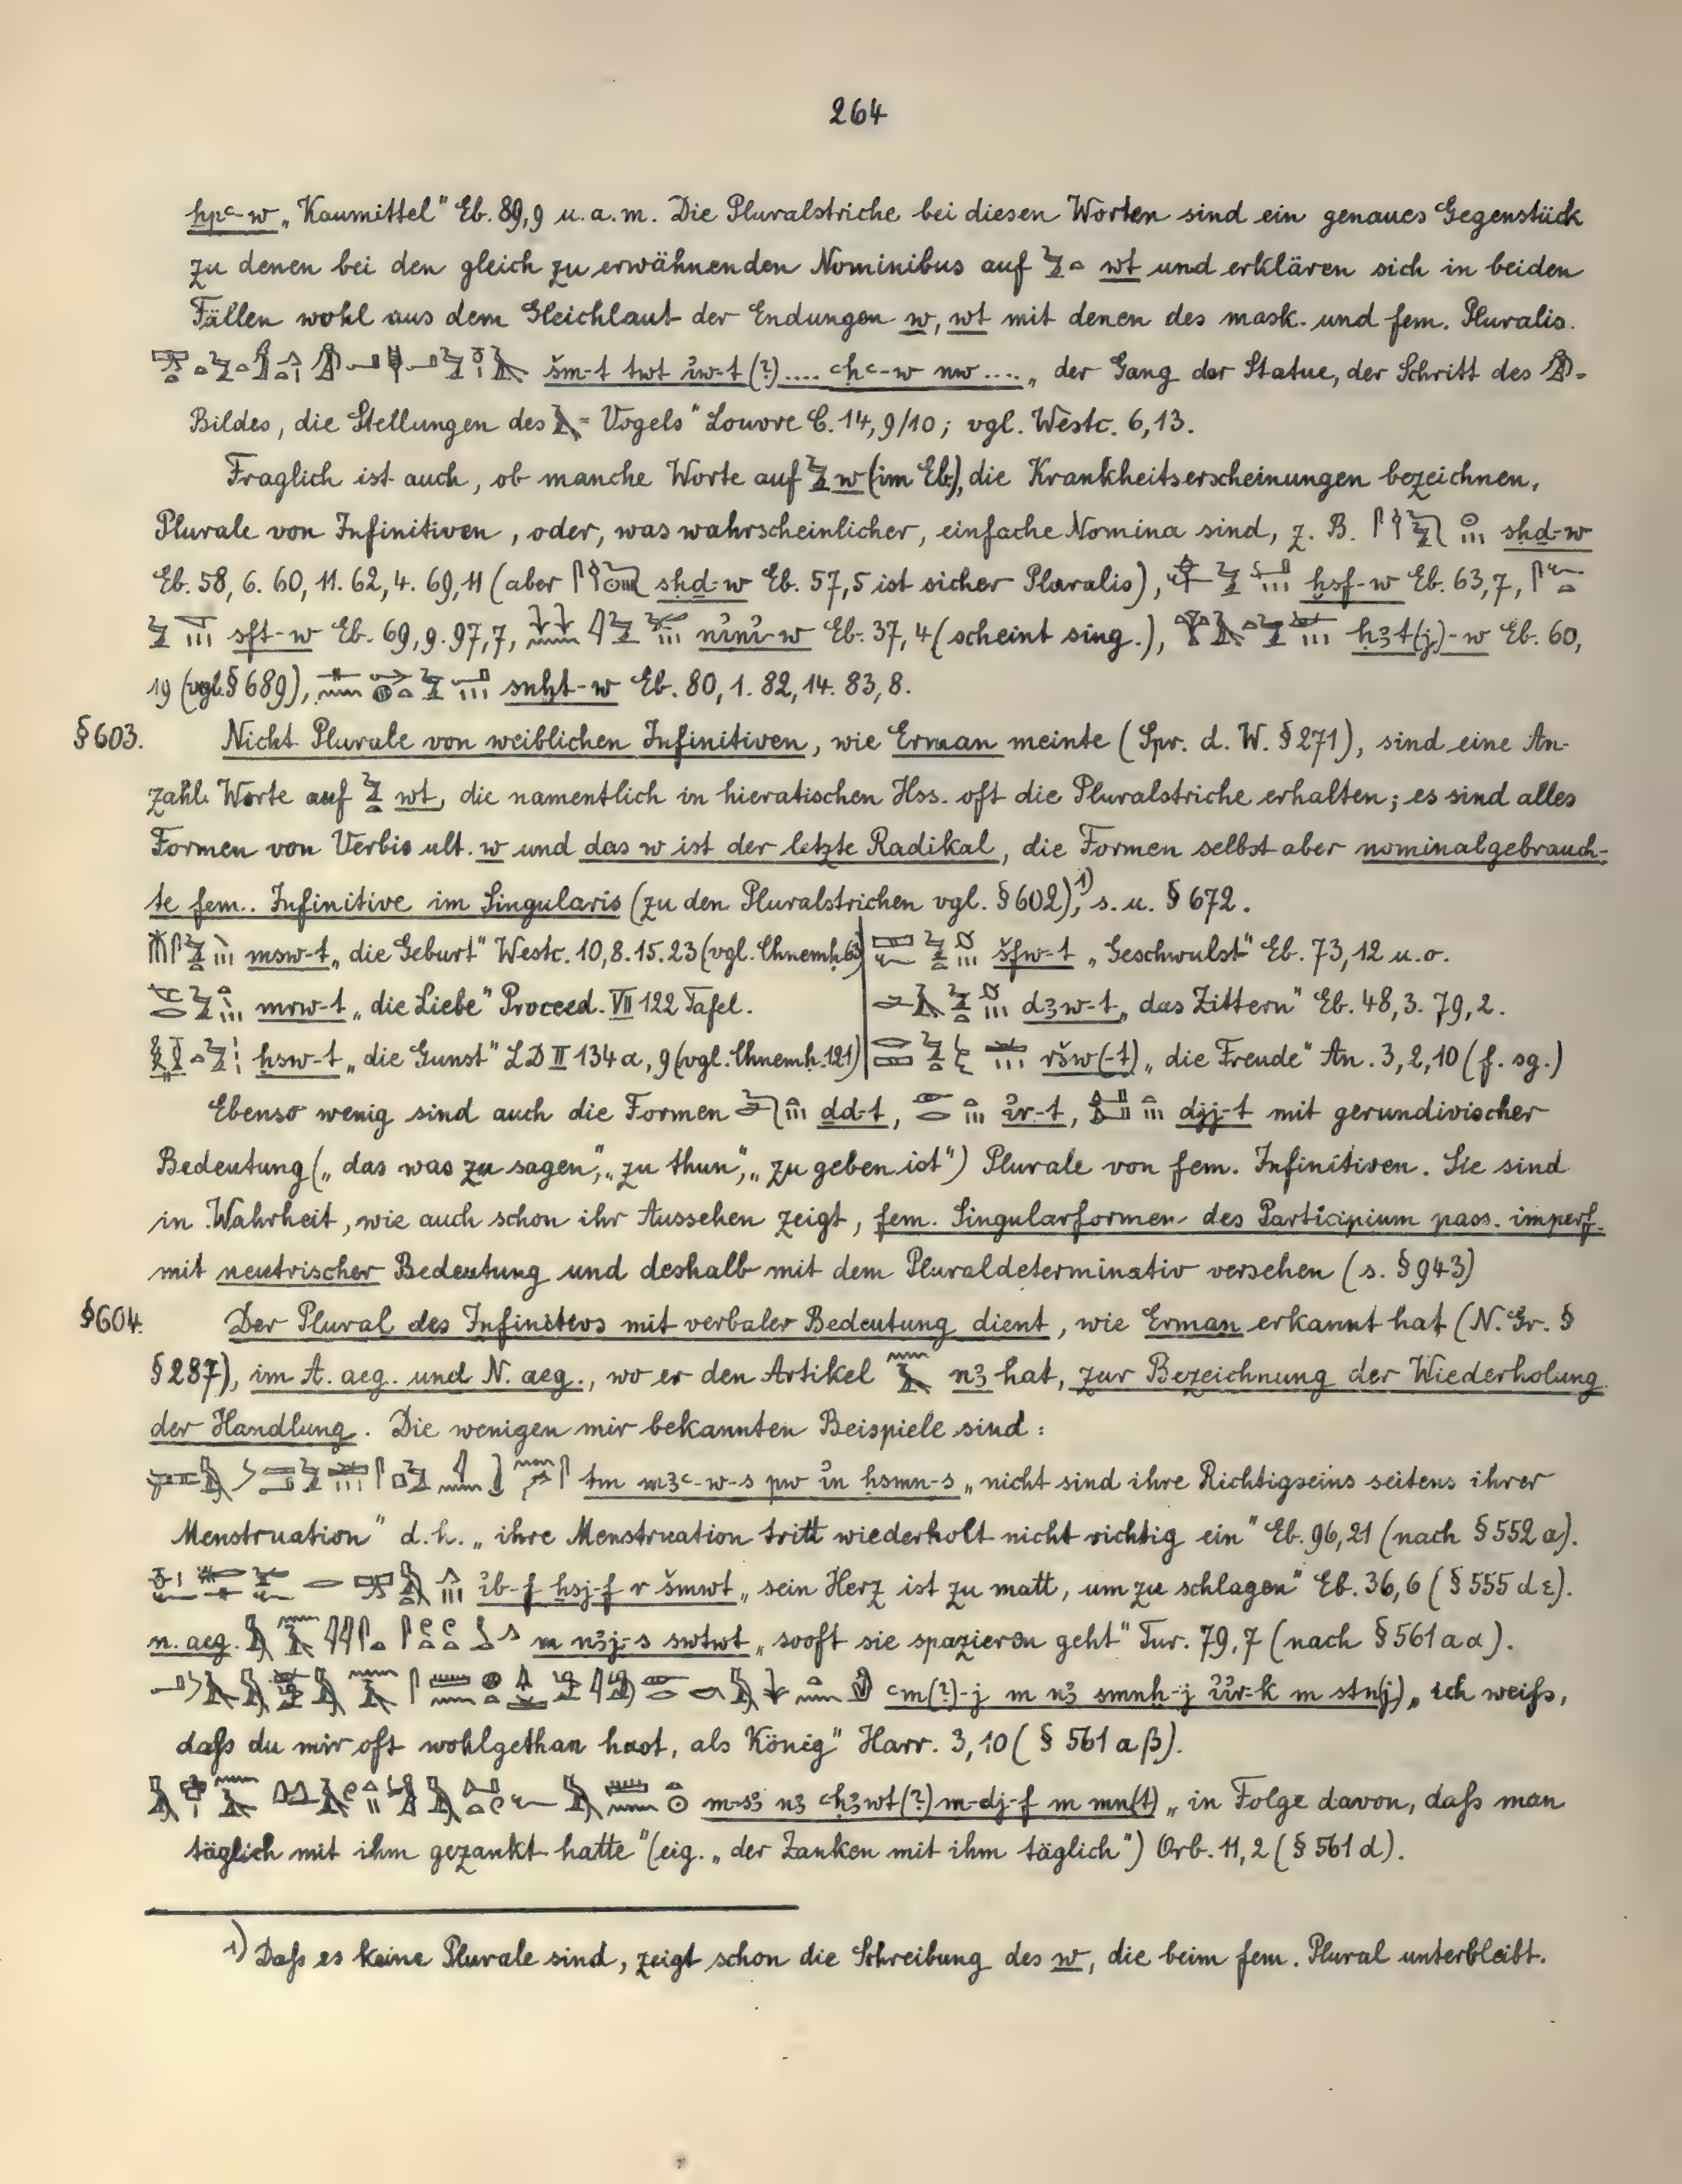 264
hpꜥ-w „Kaumittel" Eb. 89,9 u.a.m. Die Pluralstriche bei diesen Worten sind ein genaues Gegenstück
zu denen bei den gleich zu erwähnenden Nominibus auf wt und erklären sich in beiden
Fällen wohl aus dem Gleichlaut der Endungen w, wt mit denen des mask. und fem. Pluralis.
šm-t twt ı͗w-t (?).... ꜥḥꜥ-w nw .... „der Gang der Statue, der Schritt des
Bildes, die Stellungen des - Vogels" Louvre C. 14, 9/10; vgl. Westc. 6,13.
Fraglich ist auch, ob manche Worte auf w (im Eb.), die Krankheitserscheinungen bezeichnen,
Plurale von Infinitiven, oder, was wahrscheinlicher, einfache Nomina sind, z. B. sḥḏ-w
Eb. 58, 6. 60, 11. 62, 4. 69, 11 (aber sḥḏ-w Eb. 57,5 ist sicher Pluralis), ḫsf-w Eb. 63,7,
sft-w Eb. 69,9. 97,7, nı͗nı͗-w Eb. 37, 4 (scheint sing.), ḥꜣt(j)-w Eb. 60,
19 (vgl. § 689), snḫt-w Eb. 80, 1. 82, 14. 83, 8.
§ 603. Nicht Plurale von weiblichen Infinitiven, wie Erman meinte (Spr. d. W. § 271), sind eine An-
zahl Worte auf wt, die namentlich in hieratischen Hss. oft die Pluralstriche erhalten; es sind alles
Formen von Verbis ult. w und das w ist der letzte Radikal, die Formen selbst aber nominalgebrauch-
te fem. Infinitive im Singularis (zu den Pluralstrichen vgl. § 602),¹) s. u. § 672.
msw-t „die Geburt" Westc. 10, 8. 15. 23 (vgl. Chnemh. 63)
mrw-t „die Liebe" Proceed. VII 122 Tafel.
ḥsw-t „die Gunst" LD II 134 a, 9 (vgl. Chnemh. 121)
šfw-t „Geschwulst" Eb. 73, 12 u. o.
dꜣw-t „das Zittern" Eb. 48, 3. 79, 2.
ršw(-t) „die Freude" An. 3, 2, 10 (f. sg.)
Ebenso wenig sind auch die Formen dd-t, ı͗r-t, djj-t mit gerundivischer
Bedeutung („das was zu sagen", „zu thun", „zu geben ist") Plurale von fem. Infinitiven. Sie sind
in Wahrheit, wie auch schon ihr Aussehen zeigt, fem. Singularformen des Participium pass. imperf.
mit neutrischer Bedeutung und deshalb mit dem Pluraldeterminativ versehen (s. § 943)
§ 604. Der Plural des Infinitivs mit verbaler Bedeutung dient, wie Erman erkannt hat (N. Gr. §
§ 287), im A. aeg. und N. aeg., wo er den Artikel nꜣ hat, zur Bezeichnung der Wiederholung
der Handlung. Die wenigen mir bekannten Beispiele sind:
tm mꜣꜥ-w-s pw ı͗n ḥsmn-s „nicht sind ihre Richtigseins seitens ihrer
Menstruation" d. h. „ihre Menstruation tritt wiederholt nicht richtig ein" Eb. 96, 21 (nach § 552 a).
ı͗b-f ḥsj-f r šmwt „sein Herz ist zu matt, um zu schlagen" Eb. 36, 6 (§ 555 d ε).
n. aeg. m nꜣj-s swtwt „sooft sie spazieren geht" Tur. 79, 7 (nach § 561 a α).
ꜥm(?)-j m nꜣ smnḫ-j ı͗ı͗r-k m stn(j) „ich weiß,
daß du mir oft wohlgethan hast, als König" Harr. 3, 10 (§ 561 a β).
m-sꜣ nꜣ ꜥḥꜣwt(?) m-dj-f m mn(t) „in Folge davon, daß man
täglich mit ihm gezankt hatte" (eig. „der Zanken mit ihm täglich") Orb. 11, 2 (§ 561 d).
¹) Daß es keine Plurale sind, zeigt schon die Schreibung des w, die beim fem. Plural unterbleibt.